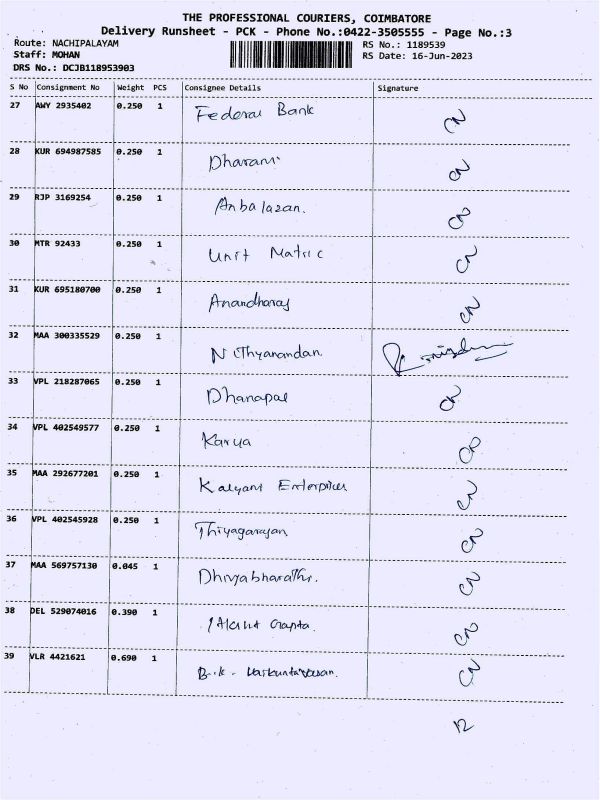 THE PROFESSIONAL COURIERS, COIMBATORE
Delivery Runsheet - PCK - Phone No.:0422-3505555 - Page No.:3
Route: NACHIPALAYAM RS No.: 1189539
Staff: MOHAN RS Date: 16-Jun-2023
DRS No.: DCJB118953903
S No Consignment No Weight PCS Consignee Details Signature
27 AWY 2935402 0.250 1 Federal Bank CN
28 KUR 694987585 0.250 1 Dharani CN
29 RJP 3169254 0.250 1 Anbalazan. CN
30 MTR 92433 0.250 1 Unit Matric CN
31 KUR 695180700 0.250 1 Anandharaj CN
32 MAA 300335529 0.250 1 Nithyanandan.
33 VPL 218287065 0.250 1 Dhanapal
34 VPL 402549577 0.250 1 Karya
35 MAA 292677201 0.250 1 Kalyani Enterprices CN
36 VPL 402545928 0.250 1 Thiyagarajan CN
37 MAA 569757130 0.045 1 Dhivyabharathi. CN
38 DEL 529074016 0.390 1 Gupta. CN
39 VLR 4421621 0.690 1 CN
12